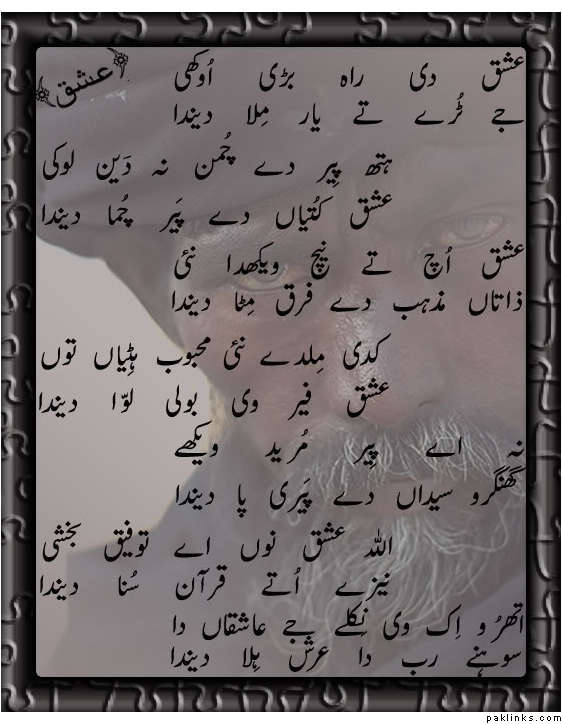 عشق
عشق دی راہ بڑی اُوکھی
جے ٹُرے تے یار مِلا دیندا
ہتھ پِیر دے چُمن نہ دَین لوکی
عشق کُتیاں دے پَیر چُما دیندا
عشق اُچ تے نِیچ ویکھدا نئی
ذاتاں مذہب دے فرق مِٹا دیندا
کدی مِلدے نئی محبوب ہٹیاں توں
عشق فیر وی بولی لوّا دیندا
نہ اے پِیر مُرید ویکھے
گھنگرو سیداں دے پَیری پا دیندا
اللہ عشق نوں اے توفیق بخشی
نیزے اُتے قرآن سُنا دیندا
اتھرُو اِک وی نِکلے جے عاشقاں دا
سوہنے رب دا عرش ہِلا دیندا
paklinks.com